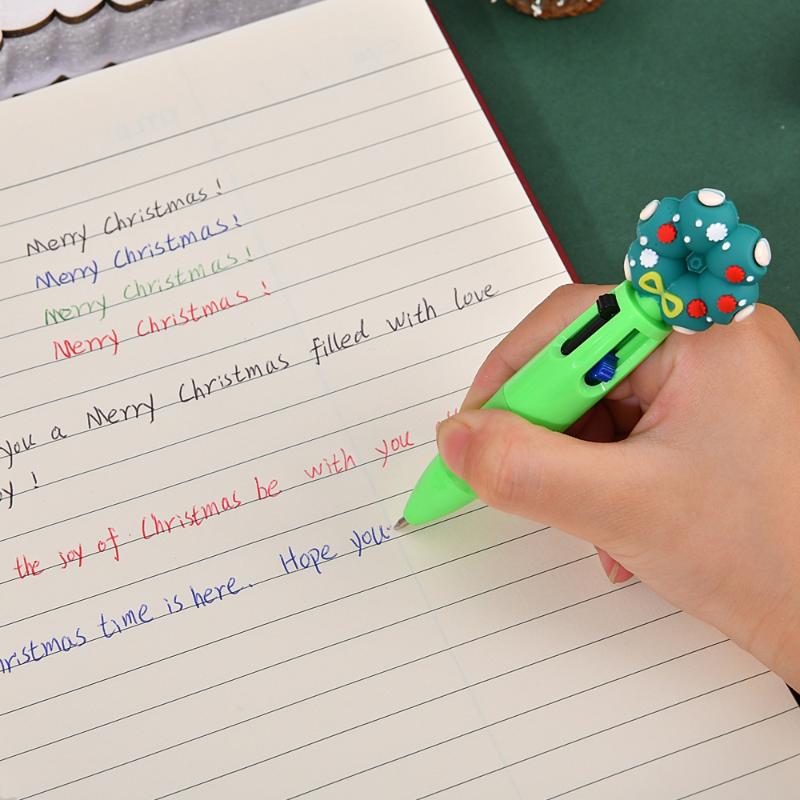 Merry Christmas!
Merry Christmas!
Merry Christmas!
Merry Christmas!
you a Merry Christmas filled with love
the joy of Christmas be with you
time is here. Hope you